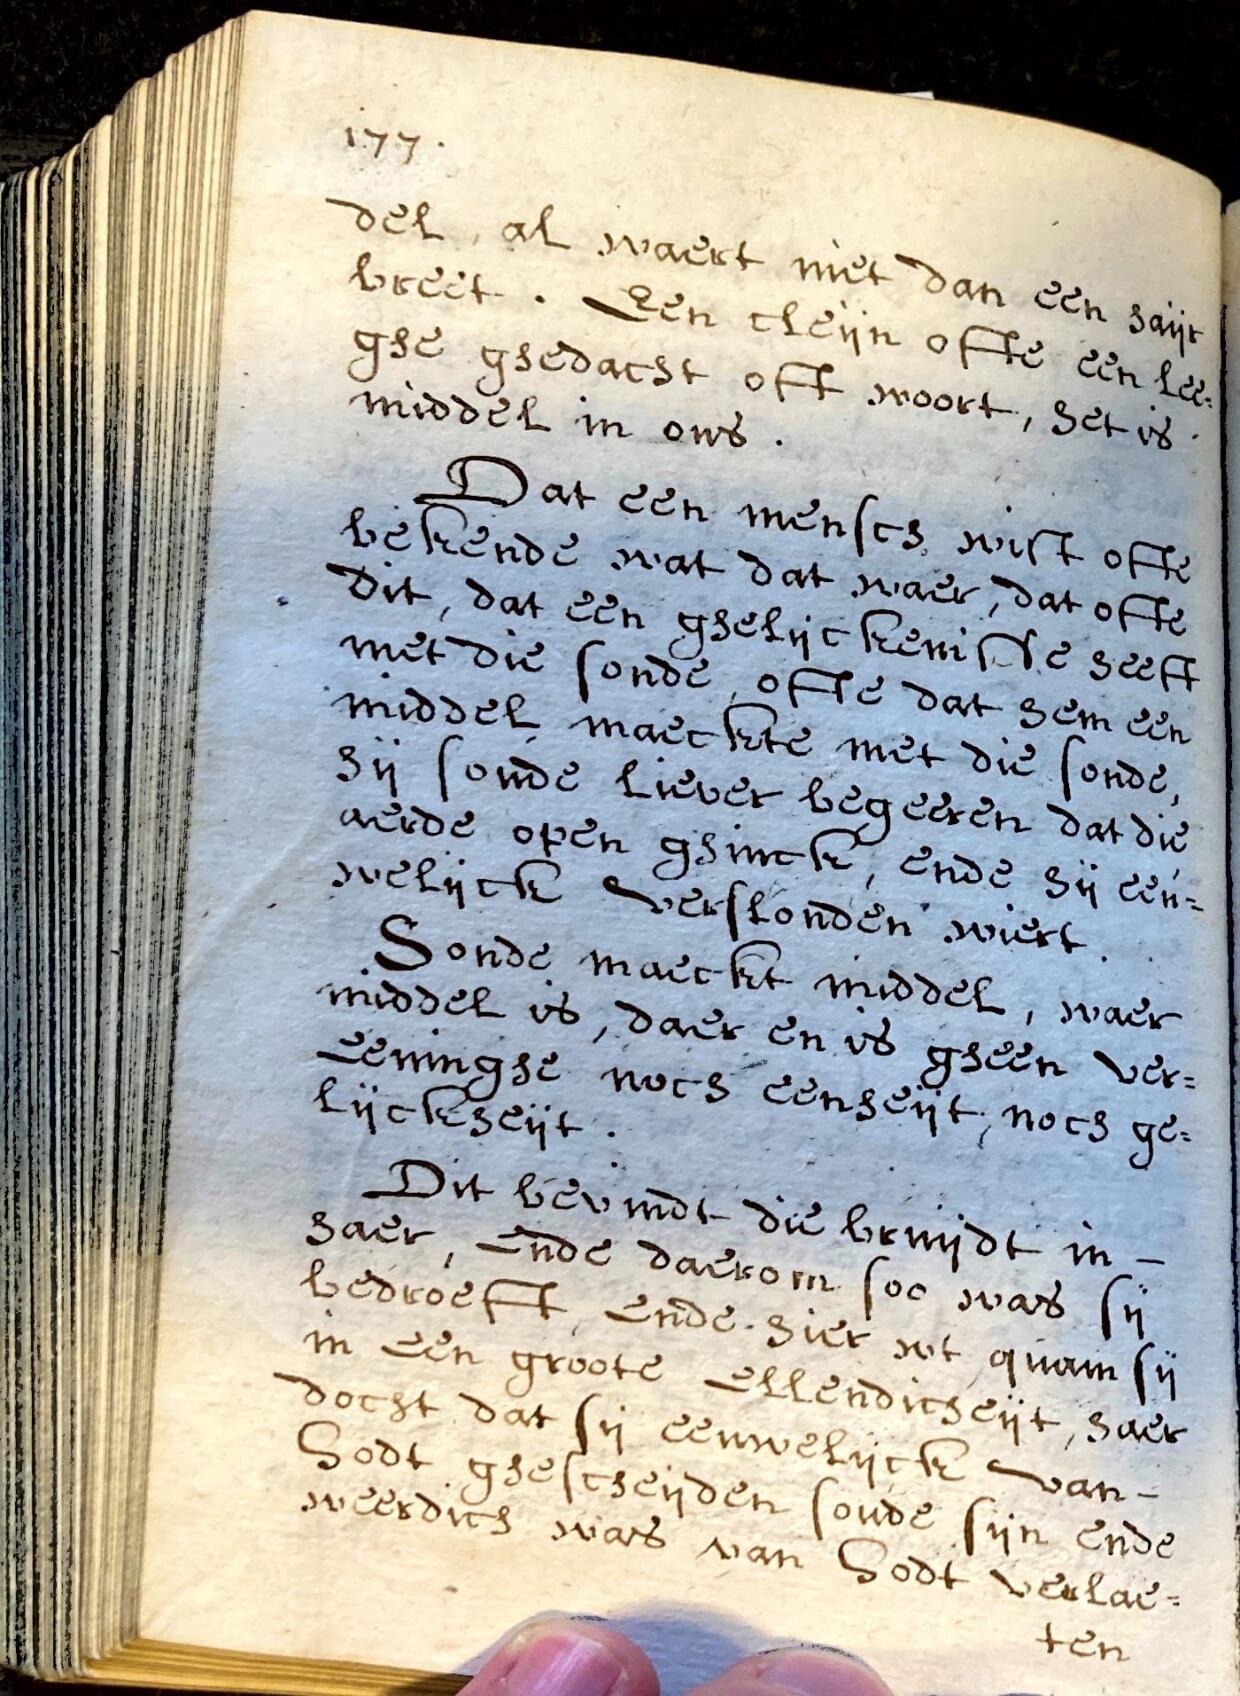 177.
del, al waert niet dan een haijr
breet. Een cleijn ofte een lee=
ghe ghedacht oft woort, het is
middel in ons.
Dat een mensch wist ofte
bekende wat dat waer, dat ofte
dit, dat een ghelijckenisse heeft
met die sonde, ofte dat hem een
middel maeckte met die sonde,
hij soude liever begeeren dat die
aerde open ghinck, ende hij eeu=
welijck verslonden wiert.
Sonde maeckt middel, waer
middel is, daer en is gheen ver=
eeninghe noch eenheijt, noch ge=
lijckheijt.
Dit bevindt die bruijdt in-
haer, ende daerom soo was sij
bedroeft, ende hier wt quam sij
in een groote ellendicheijt, haer
docht dat sij eeuwelijck van-
Godt ghescheijden soude sijn ende
weerdich was van Godt verlae=
ten